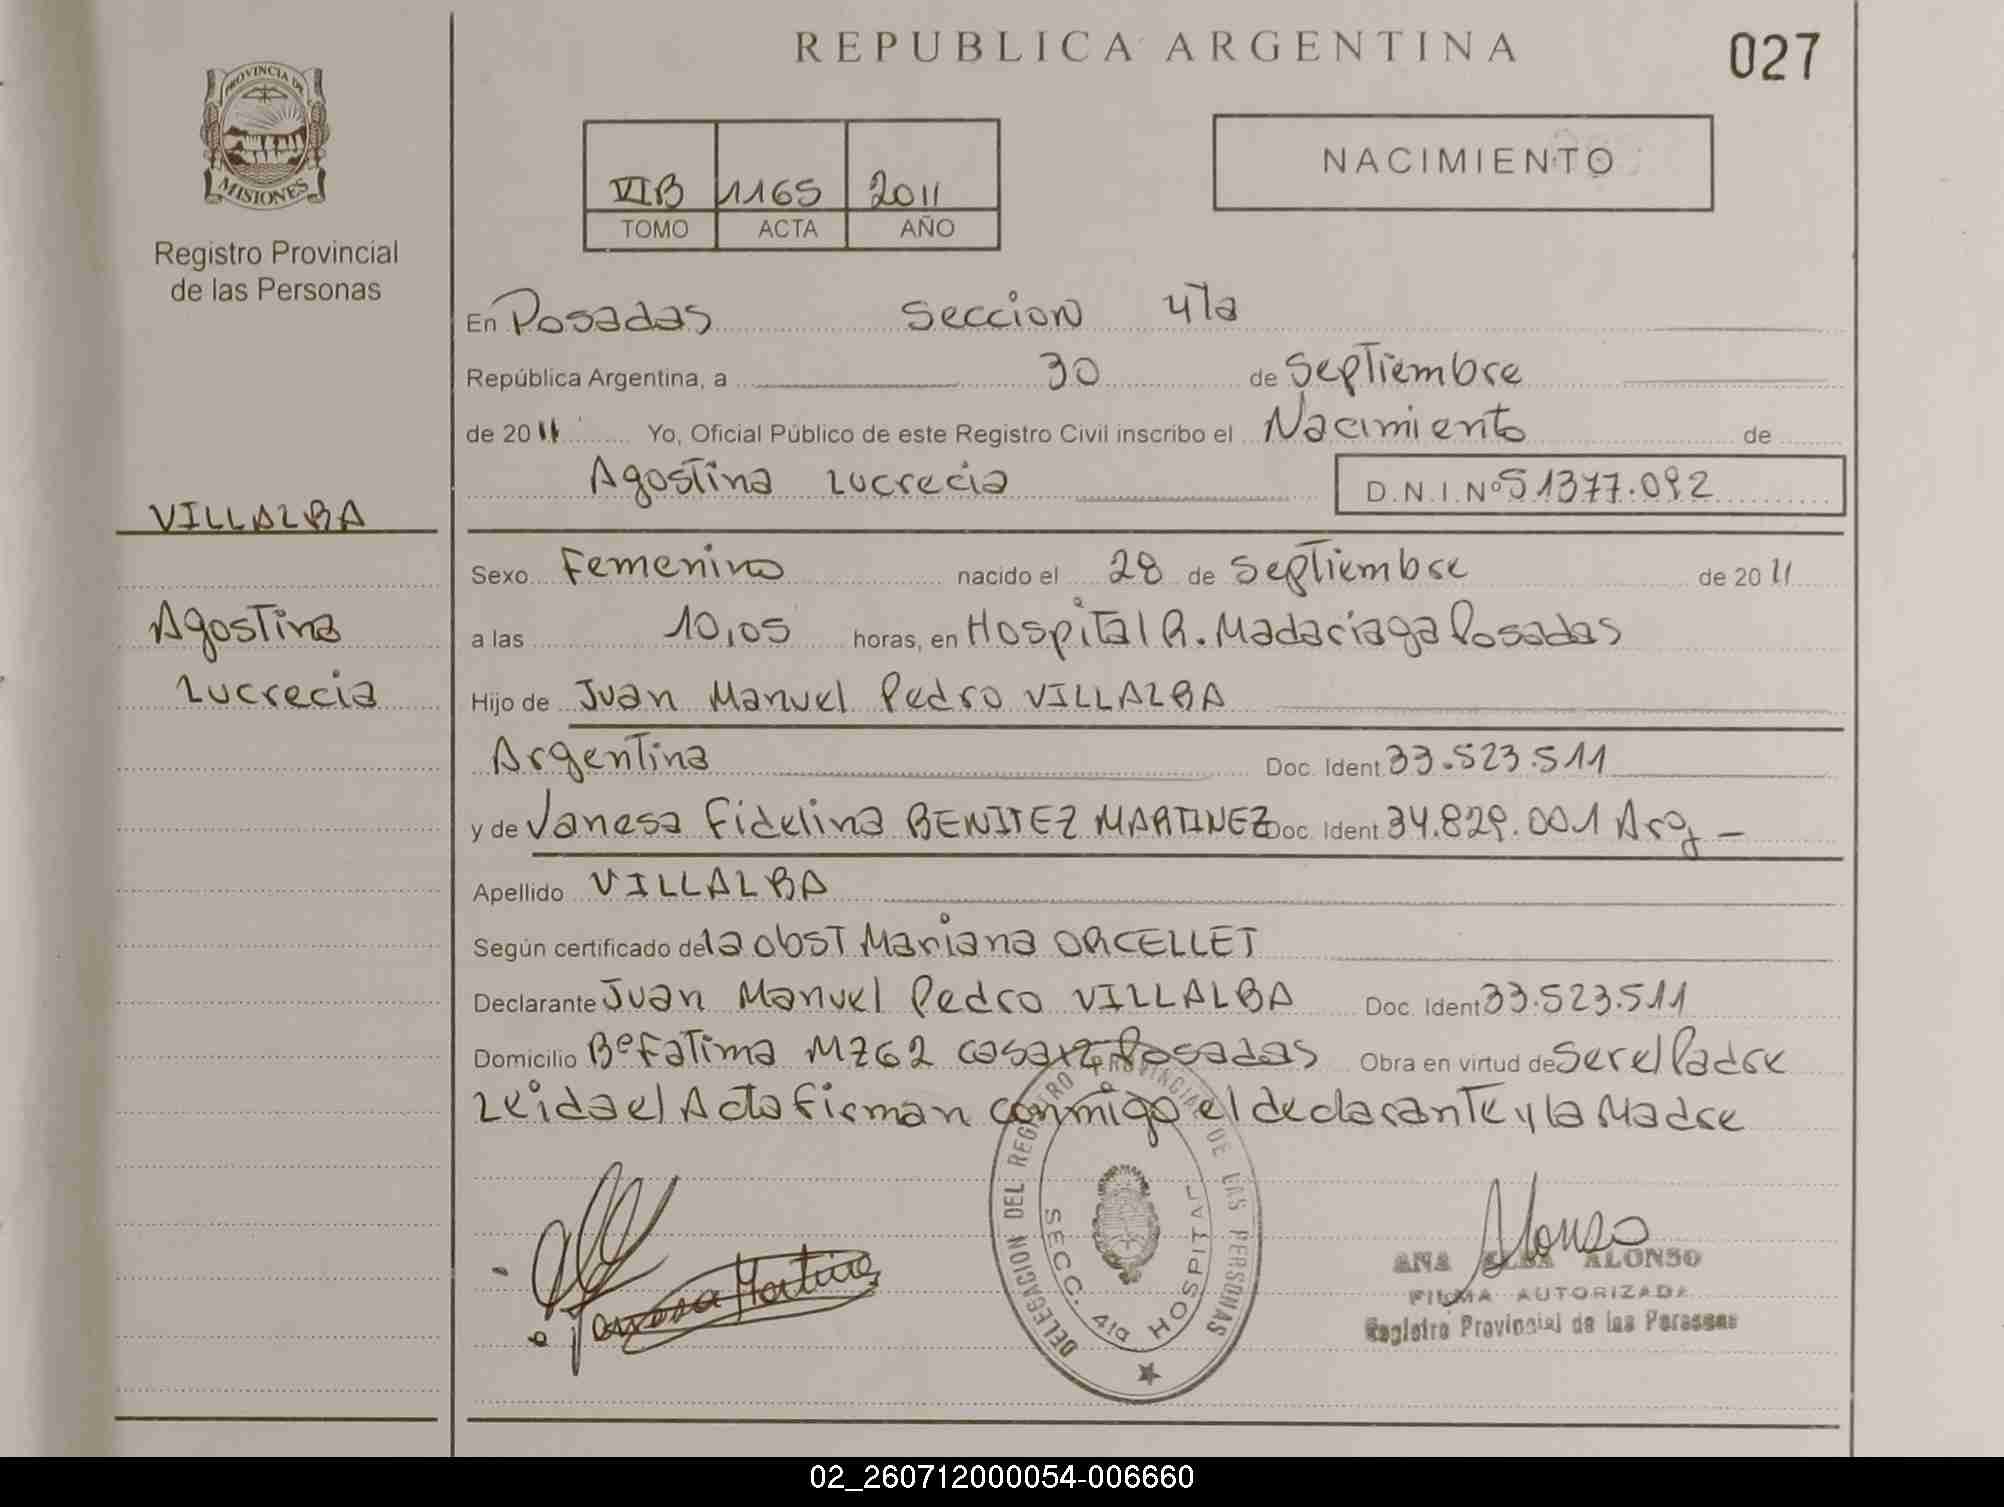 REPUBLICA ARGENTINA
027
PROVINCIA DE
MISIONES
Registro Provincial
de las Personas
VIB 1165 2011
TOMO ACTA AÑO
NACIMIENTO
En Posadas Seccion 4ta
República Argentina, a 30 de Septiembre
de 2011 Yo, Oficial Público de este Registro Civil inscribo el Nacimiento de
Agostina Lucrecia D.N.I.Nº 51377.092
VILLALBA
Agostina
Lucrecia
Sexo Femenino nacido el 28 de Septiembre de 2011
a las 10,05 horas, en Hospital R. Madariaga Posadas
Hijo de Juan Manuel Pedro VILLALBA
Argentina Doc. Ident. 33.523.511
y de Vanesa Fidelina BENITEZ MARTINEZ Doc. Ident. 34.829.001 Arg -
Apellido VILLALBA
Según certificado de la obst Mariana ORCELLET
Declarante Juan Manuel Pedro VILLALBA Doc. Ident 33.523.511
Domicilio Bº Fatima MZ62 casa Posadas Obra en virtud de ser el Padre
Leida el Acta firman conmigo el declarante y la Madre
DELEGACION DEL REGISTRO PROVINCIAL DE LAS PERSONAS
SECC. 4ta HOSPITAL
Alonso
ANA ELBA ALONSO
FIRMA AUTORIZADA
Registro Provincial de las Personas
02_260712000054-006660